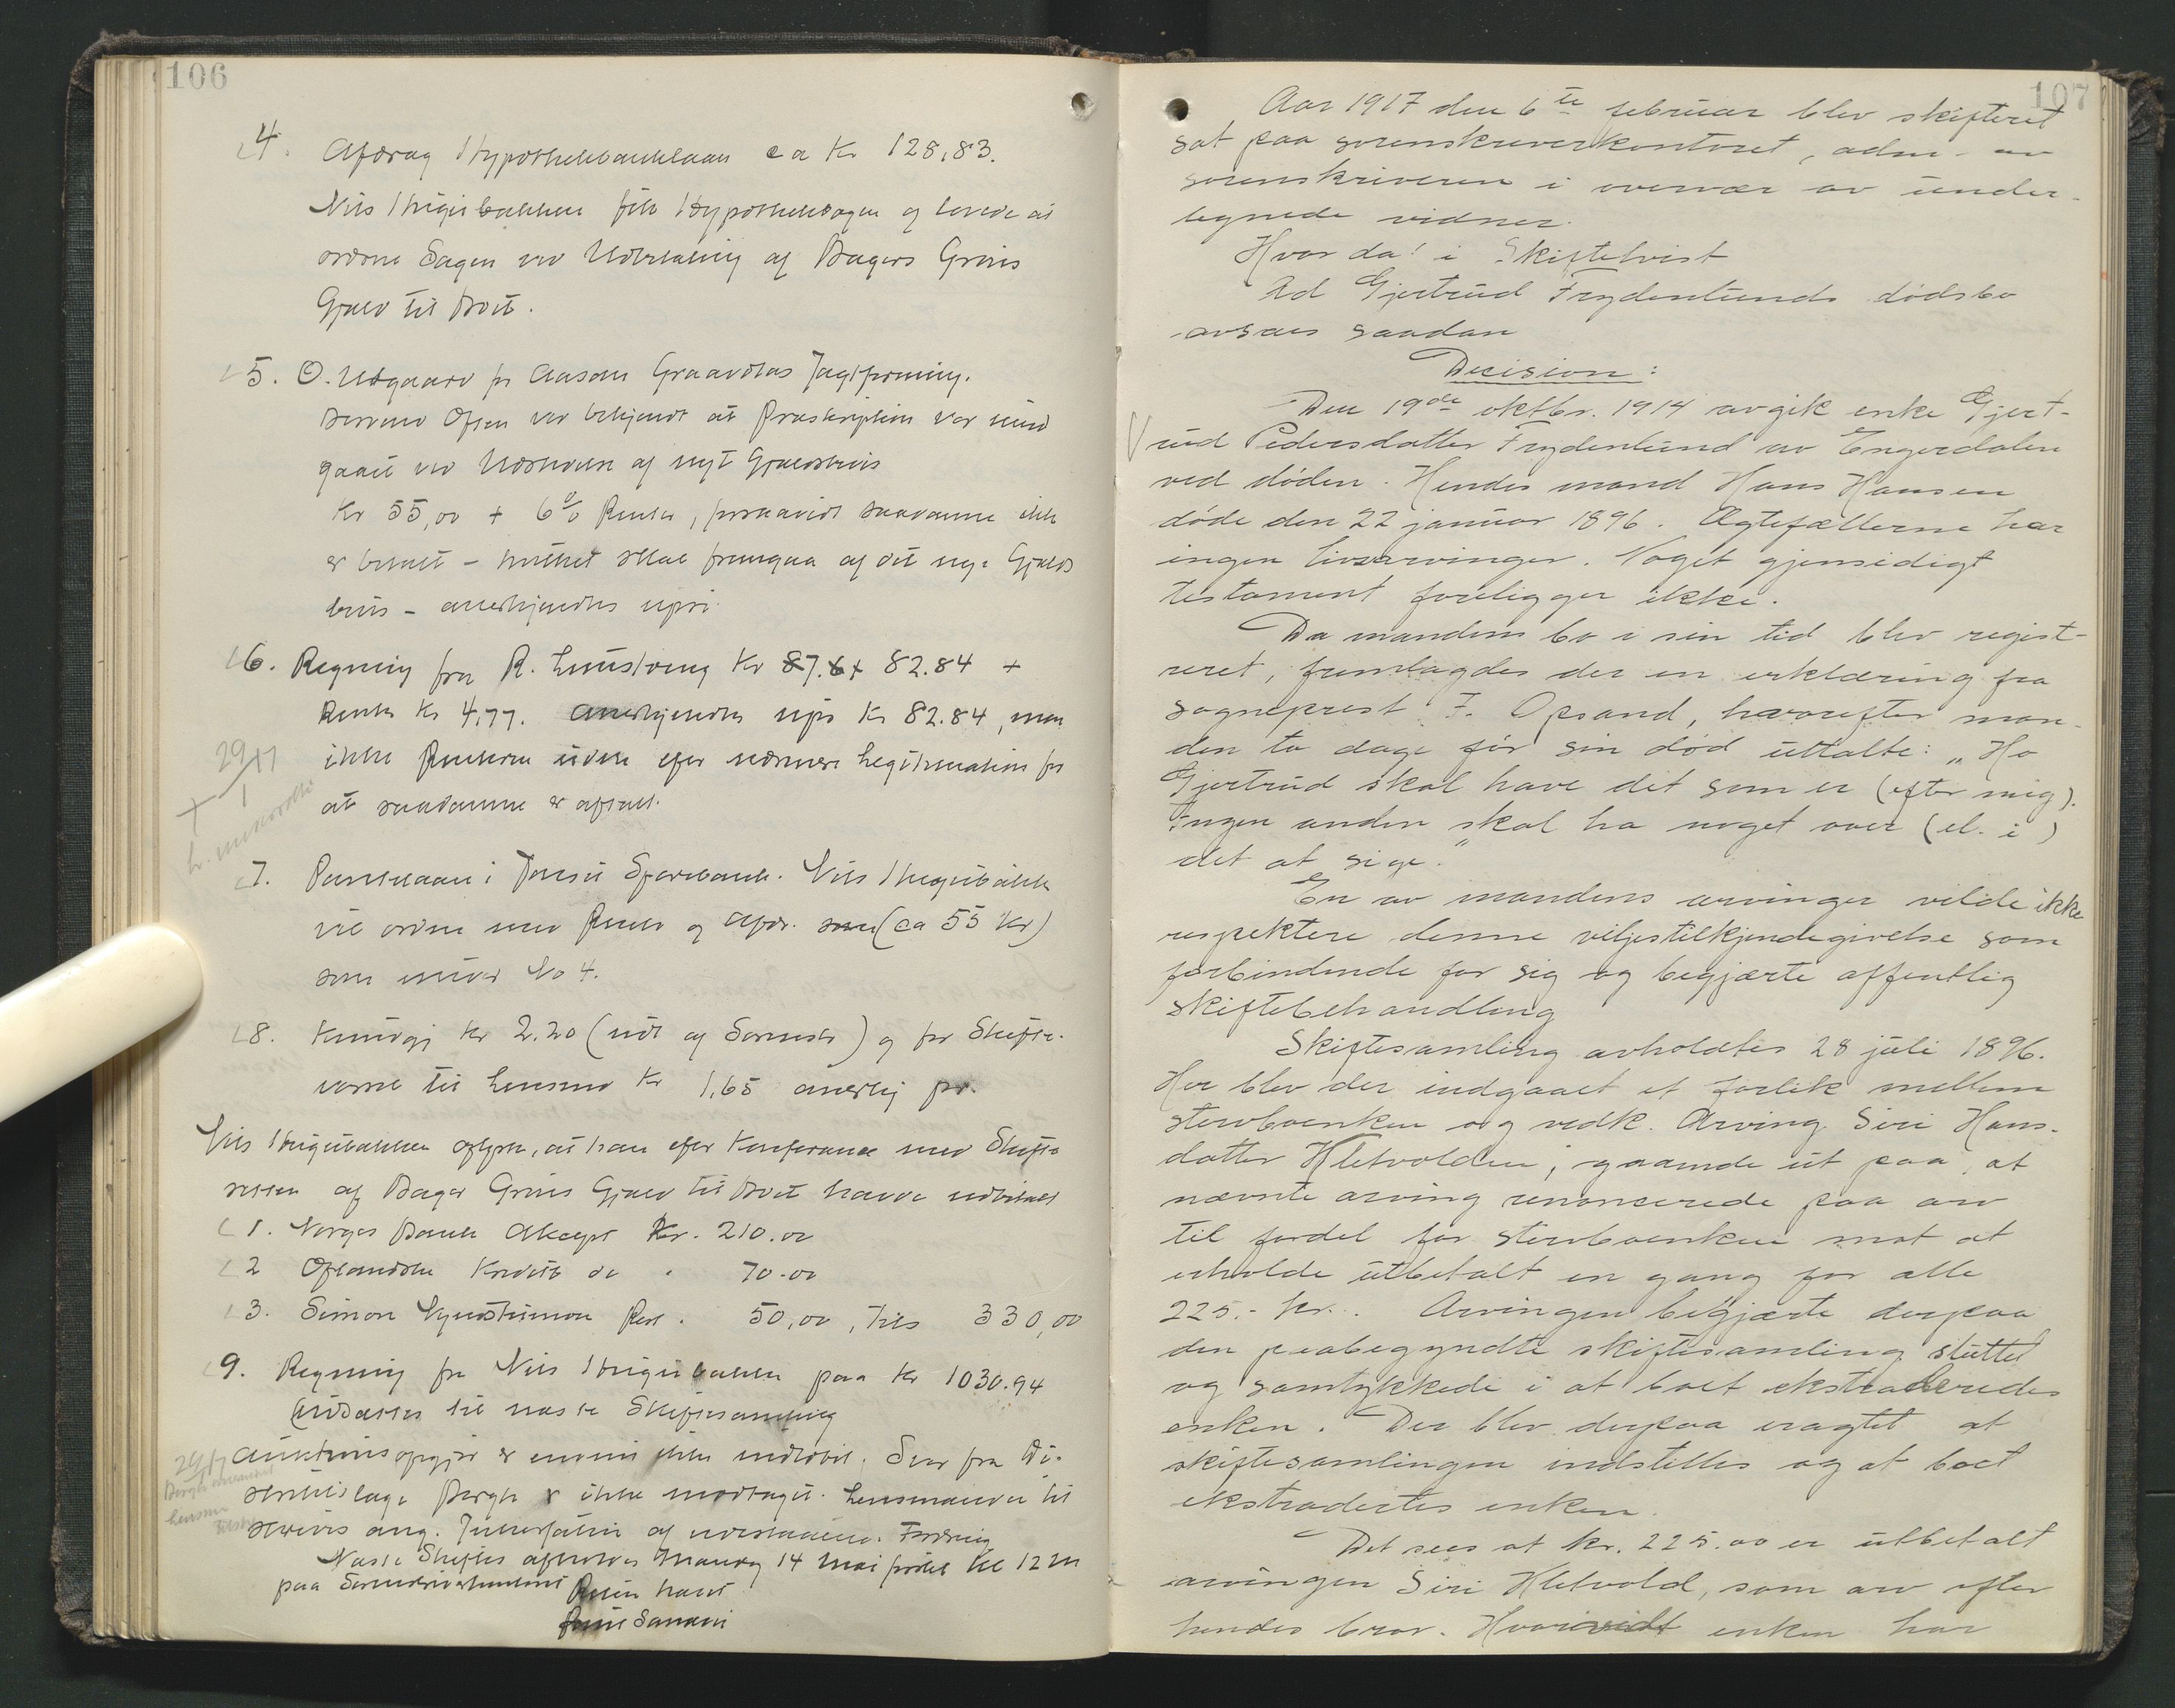 106
4. Afdrag Hypothekbanklaan ca Kr 128,83.
Nils fik Hypotheksagen og lovede at
ordne Sagen ved Udbetaling af Bagers Grins
Gjæld til Boet.
5. O. Udgaard for Graavdlas Jagtforening.
var bekjendt at Præskription var
gaaet ved af nyt Gjældsbrev
Kr 55,00 + 6% Renter, forsaavidt saadanne ikke
er betalt - hvilket skal fremgaa af det nye Gjælds
brev -
6. Regning fra R. Kr 82.84 +
Renter Kr 4,77. Anerkjendtes Kr 82.84, men
ikke Renterne uden efter nærmere Legitimation for
at saadanne er aftalt.
29/1 17
7. i Sparebank. Nils
vil ordne med Rente og Afdr. (ca 55 Kr)
som under No 4.
8. Kundgj Kr 2.20 (udl af Sorenskr) og for Skifte-
varsel til Lensmd Kr 1,65
Nils oplyste, at han efter Konferance med Skifte
retten af Bager Grins Gjæld til Boet havde udbetalt
1. Norges Bank Akcept Kr. 210.00
2 Oplandske Kredit do " 70.00
3. Simon Rest " 50,00, Tils 330,00
9. Regning fra Nils paa Kr 1030.94
Udsættes til næste Skiftesamling
29/1 17 Auktionsopgjør er endnu ikke indløbet. Svar fra Di-
striktslæge Bergh er ikke modtaget. Lensmanden til
skrives ang. af Fordring
Næste Skifte afholdes Mandag 14 Mai førstk Kl 12 M
paa Sorenskriverkontoret Retten hævet

107
Aar 1917 den 6te februar blev skifteret
sat paa sorenskriverkontoret, adm. av
sorenskriveren i overvær av under-
tegnede vidner.
Hvorda! i Skiftetvist
Ad Gjertrud Frydenlunds dødsbo
avsaes saadan
Decision:
Den 19de oktbr. 1914 avgik enke Gjert-
rud Pedersdatter Frydenlund av Engerdalen
ved døden. Hendes mand Hans Hansen
døde den 22 januar 1896. Ægtefællerne har
ingen livsarvinger. Noget gjensidigt
testament foreligger ikke.
Da mandens bo i sin tid blev regist-
reret, fremlagdes der en erklæring fra
sogneprest F. Opsand, hvorefter man-
den to dage før sin død uttalte: "Ho
Gjertrud skal have det som er (efter mig).
Ingen anden skal ha noget over (el. i)
det at sige."
En av mandens arvinger vilde ikke
respektere denne viljestilkjendegivelse som
forbindende for sig og begjærte offentlig
skiftebehandling
Skiftesamling avholdtes 28 juli 1896.
Her blev der indgaaet et forlik mellem
stervboenken og vedk. Arving Siri Hans-
datter Hletvolden, gaaende ut paa, at
nævnte arving renoncerede paa arv
til fordel for stervboenken mot at
erholde utbetalt en gang for alle
225.- kr. Arvingen begjærte derpaa
den paabegyndte skiftesamling sluttet
og samtykkede i at boet ekstraderedes
enken. Der blev derpaa eragtet at
skiftesamlingen indstilles og at boet
ekstradertes enken.
Det sees at kr. 225.00 er utbetalt
arvingen Siri Hletvold, som arv efter
hendes bror. Hvorvidt enken har